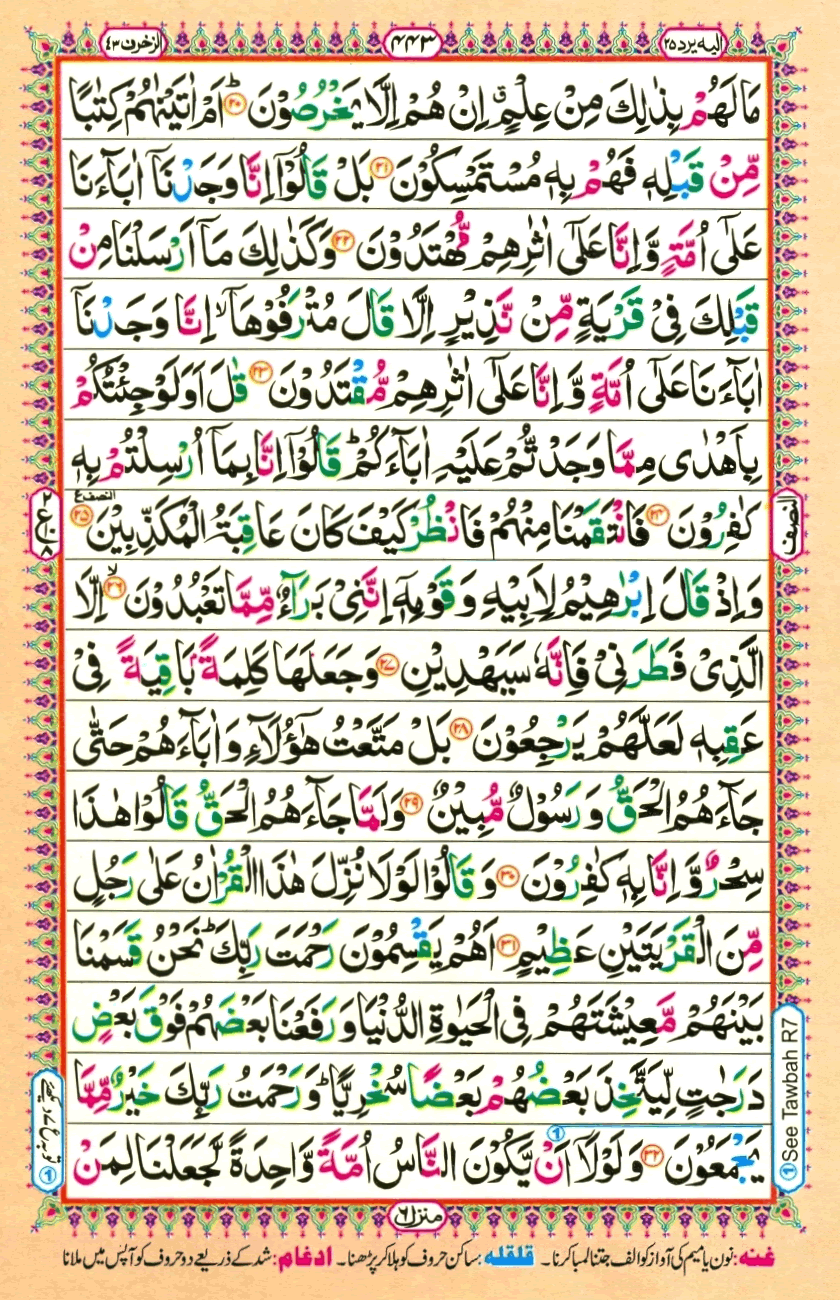 الزخرف ۴۳
۴۴۳
الیه یرد ۲۵
مَا لَهُمْ بِذٰلِكَ مِنْ عِلْمٍ ۗ اِنْ هُمْ اِلَّا یَخْرُصُوْنَ ؕ۝۲۰ اَمْ اٰتَیْنٰهُمْ كِتٰبًا
مِّنْ قَبْلِهٖ فَهُمْ بِهٖ مُسْتَمْسِكُوْنَ ۝۲۱ بَلْ قَالُوْۤا اِنَّا وَجَدْنَاۤ اٰبَآءَنَا
عَلٰۤی اُمَّةٍ وَّ اِنَّا عَلٰۤی اٰثٰرِهِمْ مُّهْتَدُوْنَ ۝۲۲ وَ كَذٰلِكَ مَاۤ اَرْسَلْنَا مِنْ
قَبْلِكَ فِیْ قَرْیَةٍ مِّنْ نَّذِیْرٍ اِلَّا قَالَ مُتْرَفُوْهَاۤ ۙ اِنَّا وَجَدْنَاۤ
اٰبَآءَنَا عَلٰۤی اُمَّةٍ وَّ اِنَّا عَلٰۤی اٰثٰرِهِمْ مُّقْتَدُوْنَ ۝۲۳ قٰلَ اَوَلَوْ جِئْتُكُمْ
بِاَهْدٰی مِمَّا وَجَدْتُّمْ عَلَیْهِ اٰبَآءَكُمْ ؕ قَالُوْۤا اِنَّا بِمَاۤ اُرْسِلْتُمْ بِهٖ
كٰفِرُوْنَ ۝۲۴ فَانْتَقَمْنَا مِنْهُمْ فَانْظُرْ كَیْفَ كَانَ عَاقِبَةُ الْمُكَذِّبِیْنَ ۝۲۵
النصف
وَ اِذْ قَالَ اِبْرٰهِیْمُ لِاَبِیْهِ وَ قَوْمِهٖۤ اِنَّنِیْ بَرَآءٌ مِّمَّا تَعْبُدُوْنَ ۙ۝۲۶ اِلَّا
الَّذِیْ فَطَرَنِیْ فَاِنَّهٗ سَیَهْدِیْنِ ۝۲۷ وَ جَعَلَهَا كَلِمَةًۢ بَاقِیَةً فِیْ
عَقِبِهٖ لَعَلَّهُمْ یَرْجِعُوْنَ ۝۲۸ بَلْ مَتَّعْتُ هٰۤؤُلَآءِ وَ اٰبَآءَهُمْ حَتّٰی
جَآءَهُمُ الْحَقُّ وَ رَسُوْلٌ مُّبِیْنٌ ۝۲۹ وَ لَمَّا جَآءَهُمُ الْحَقُّ قَالُوْا هٰذَا
سِحْرٌ وَّ اِنَّا بِهٖ كٰفِرُوْنَ ۝۳۰ وَ قَالُوْا لَوْ لَا نُزِّلَ هٰذَا الْقُرْاٰنُ عَلٰی رَجُلٍ
مِّنَ الْقَرْیَتَیْنِ عَظِیْمٍ ۝۳۱ اَهُمْ یَقْسِمُوْنَ رَحْمَتَ رَبِّكَ ؕ نَحْنُ قَسَمْنَا
بَیْنَهُمْ مَّعِیْشَتَهُمْ فِی الْحَیٰوةِ الدُّنْیَا وَ رَفَعْنَا بَعْضَهُمْ فَوْقَ بَعْضٍ
دَرَجٰتٍ لِّیَتَّخِذَ بَعْضُهُمْ بَعْضًا سُخْرِیًّا ؕ وَ رَحْمَتُ رَبِّكَ خَیْرٌ مِّمَّا
یَجْمَعُوْنَ ۝۳۲ وَ لَوْ لَاۤ اَنْ یَّكُوْنَ النَّاسُ اُمَّةً وَّاحِدَةً لَّجَعَلْنَا لِمَنْ
① See Tawbah R7
منزل ۶
غنه: نون یا میم کی آواز کو الف جتنا لمبا کرنا۔ قلقله: ساکن حروف کو ہلا کر پڑھنا۔ ادغام: شد کے ذریعے دو حروف کو آپس میں ملانا